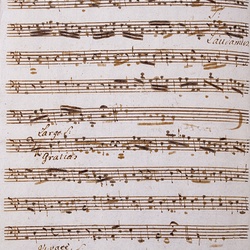 Laudamus
Largo
Gratias
Vivace